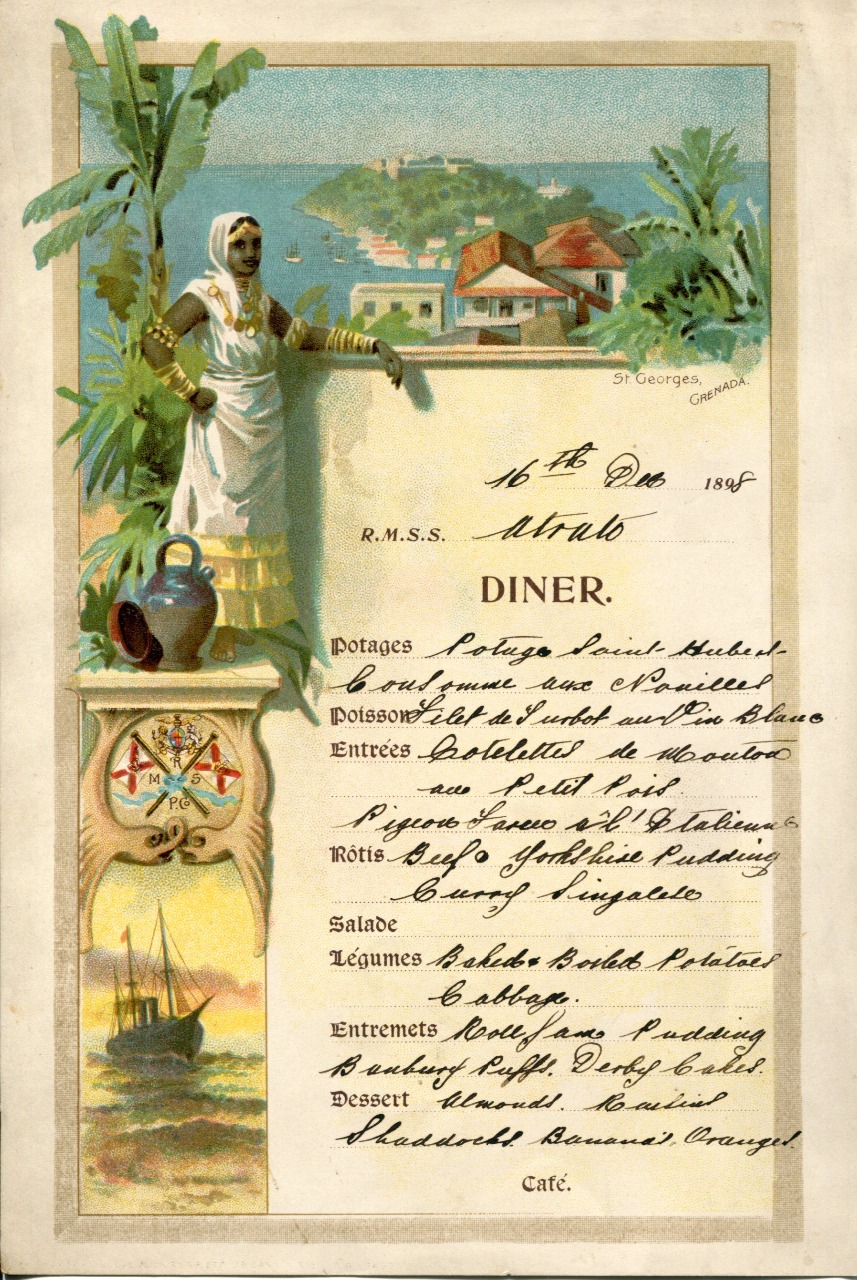 St. Georges,
GRENADA.
16th Dec 1898
R.M.S.S. Atrato
DINER.
Potages Potage Saint-Hubert
Consomme aux Nouilles
Poisson Filet de Turbot au Vin Blanc
Entrées Cotelettes de Mouton
aux Petit Pois.
Pigeon Farcee à l'Italienne
Rôtis Beef & Yorkshire Pudding
Curry Singalese
Salade
Légumes Baked & Boiled Potatoes
Cabbage.
Entremets Roll Jam Pudding
Banbury Puffs. Derby Cakes.
Dessert Almonds. Raisins
Shaddocks. Bananas. Oranges.
Café.
R
M S
S
P.Co